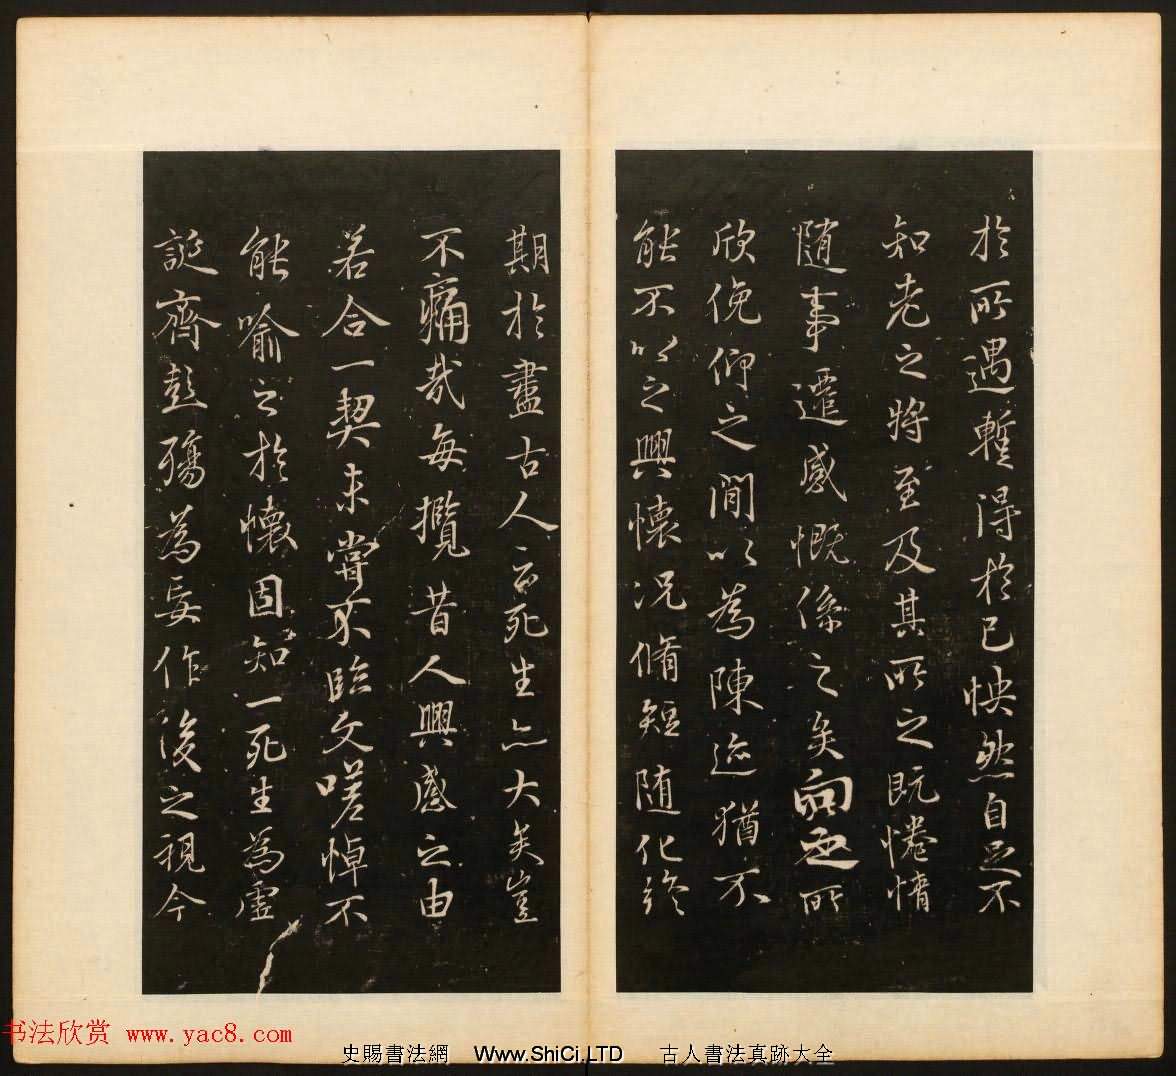 於所遇暫得於已怏然自足不
知老之將至及其所之既惓情
随事遷感慨係之矣向之所
欣俛仰之間以為陳迹猶不
能不以之興懷況脩短随化終
期於盡古人云死生亦大矣豈
不痛哉每攬昔人興感之由
若合一契未嘗不臨文嗟悼不
能喻之於懷固知一死生為虛
誕齊彭殤為妄作後之視今
书法欣赏 www.yac8.com
史賜書法網 Www.ShiCi.LTD 古人書法真跡大全